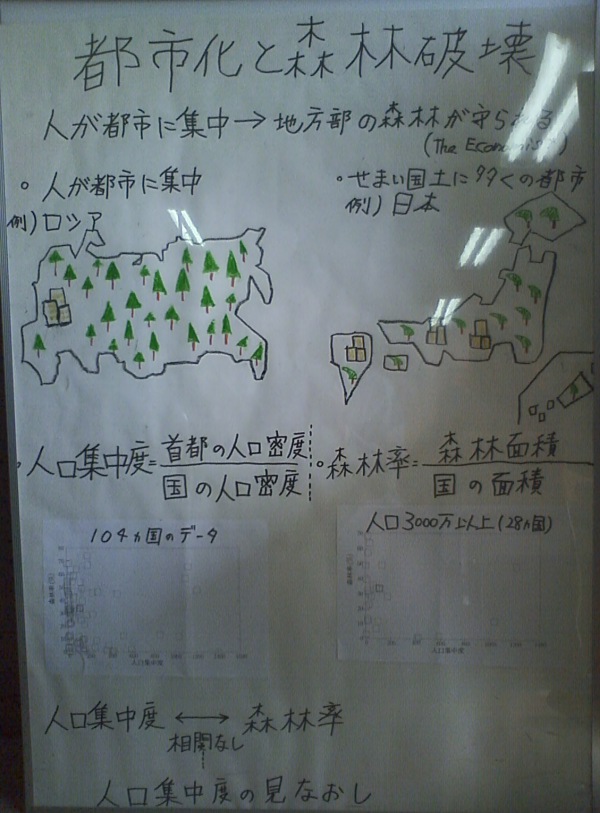 都市化と森林破壊
人が都市に集中→地方部の森林が守られる
(The Economist)
○ 人が都市に集中
例)ロシア
○ せまい国土に多くの都市
例)日本
人口集中度=首都の人口密度/国の人口密度
森林率=森林面積/国の面積
104ヵ国のデータ
人口3000万以上(28ヵ国)
人口集中度
人口集中度
人口集中度 ⟷ 森林率
相関なし
人口集中度の見なおし